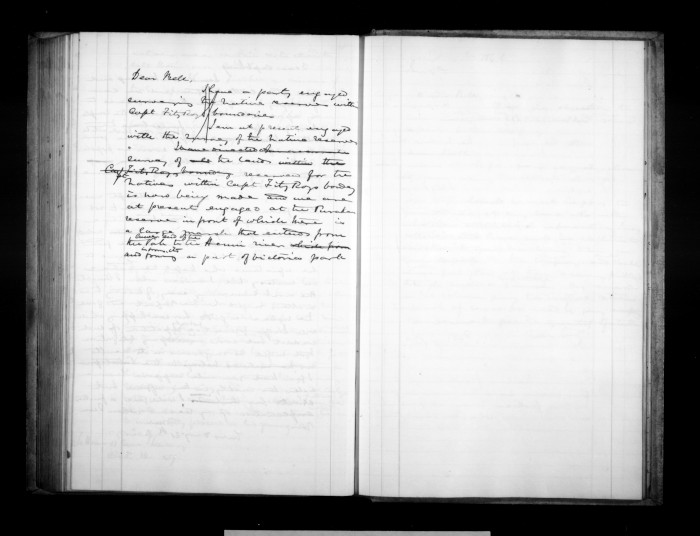 Dear Nele,
I have a party engaged
surveying the native reserves with
Capt FitzRoys boundaries
I am at present engaged
with the survey of the native reserves
survey of the lands within the
Capt FitzRoys boundary reserves for the
natives within Capt FitzRoys boundy
is now being made and we are
at present engaged at the
reserve in front of which there is
a large marsh that extends from
lower end of the
the Pah to the river which from
and forms a part of Victoria park